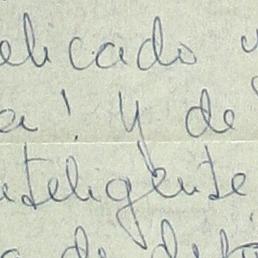 elicado
a! y de
nteligente
a de